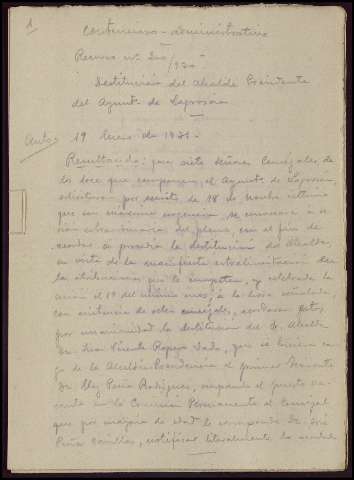 1
Contencioso-administrativo
Recurso nº 200/930
Destitución del Alcalde Presidente
del Ayunt. de
Auto: 19 Enero de 1931.-
Resultando: que siete señores Concejales de
los doce que componen el Ayunto de
por escrito de 18 de
que con urgencia se convocara a se
sion extraordinaria del pleno, con el fin de
acordar la destitución del Alcalde,
en vista de la manifiesta extralimitación de
las atribuciones que le competen, y celebrada la
sesión el 19 del mismo mes, a la hora señalada,
con asistencia de ocho concejales, acordaron estos,
por unanimidad la destitución del Sr. Alcalde
Don Vicente que se hiciera car
go de la Alcaldía Presidencia el primer Teniente
Dn. Eloy Peña Rodriguez, ocupando el puesto va
cante en la Comisión Permanente el Concejal
que por mayoría de edad le corresponde Dn. José
Peña notificar literalmente lo acordado